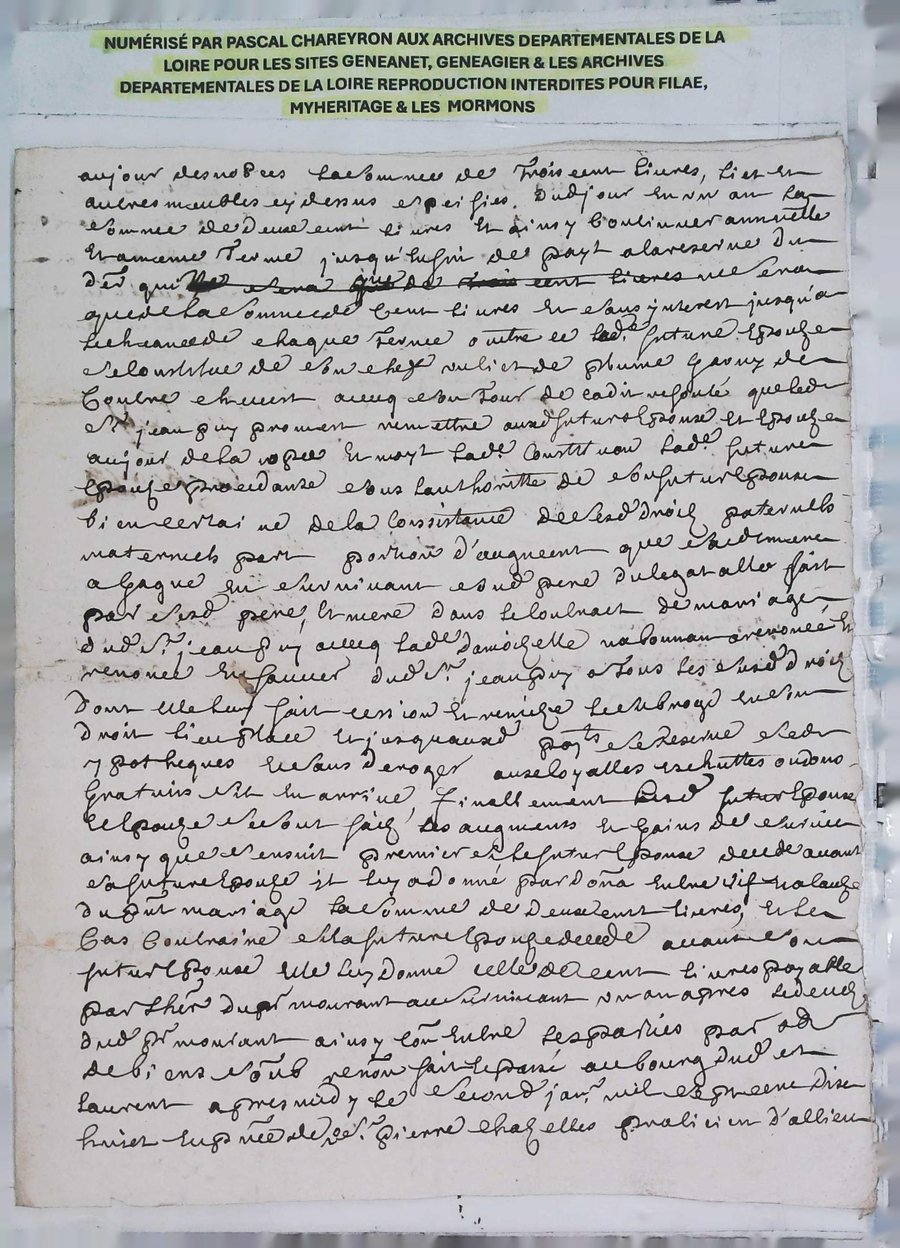 NUMÉRISÉ PAR PASCAL CHAREYRON AUX ARCHIVES DEPARTEMENTALES DE LA
LOIRE POUR LES SITES GENEANET, GENEAGIER & LES ARCHIVES
DEPARTEMENTALES DE LA LOIRE REPRODUCTION INTERDITES POUR FILAE,
MYHERITAGE & LES MORMONS
au jour des nopces la somme de Trois cent livres, lict et
autres meubles cy dessus especifies. Dudjour en un an la
somme de deux cent livres et ainsy continuer annuelle
et a meme Terme jusqu'en fin de payt a la reserve du
der qui sera que de trois cent livres ne sera
que de la somme de Cent livres et sans interest jusqu'a
lecheance de chaque Terme outre ce lade future Epouze
se constitue de son chef un lict de plume garny de
Coutre chevert avecq son Tour de cadit que led
Sr jean puy promet remettre auxd futurs Epoux et Epouze
au jour de la et moyt lade Constitution lade future
Epouze procedante sous l'authoritte de son futur Epoux
bien certaine de la Consistance de sesd droicts paternels
maternels part portion d'augment que sad mere
a gagné en survivant sond pere du legat a elle fait
par sesd pere, et mere dans le contract de mariage
dud Sr jean puy avecq lade Damoizelle a renoncé et
renonce en faveur dud Sr jean puy a tous lesd droicts
dont elle luy fait cession et remise le subroge en son
droit lieu place et jusquauxd payts se reserve lesd
ypotheques et sans deroger aux loyalles eschuttes ou dons
Gratuits s'il en arrive, finallement lesd futur Epoux
et Epouze se sont faicts les augments et gains de survie
ainsy que s'ensuit premier si le futur Epoux decede avant
sa future Epouze il luy a donné par dona entre vifs a la
du pnt mariage la somme de deux cent livres, et le
Cas Contraire et la future Epouze decede avant son
futur Epoux elle luy donne celle de cent livres payable
par lher du pr mourant au survivant un an apres le deces
dud pr mourant ainsy con entre les parties par
de biens renon fait et passé au bourg dud st
Laurent apres midy le second janr mil sept cent dix
huict en pnce de Sr pierre chazelles praticien d'allieu